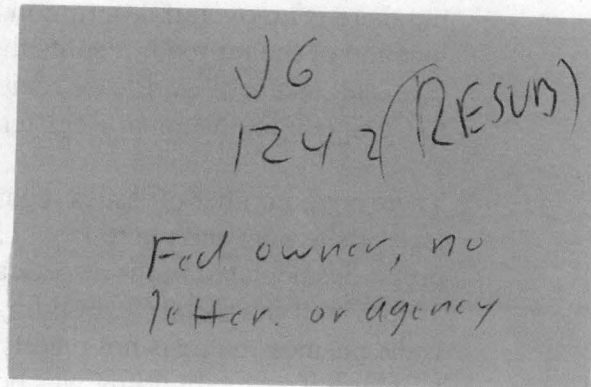 JG
1242 (RESUB)
Fed owner, no
letter. or agency